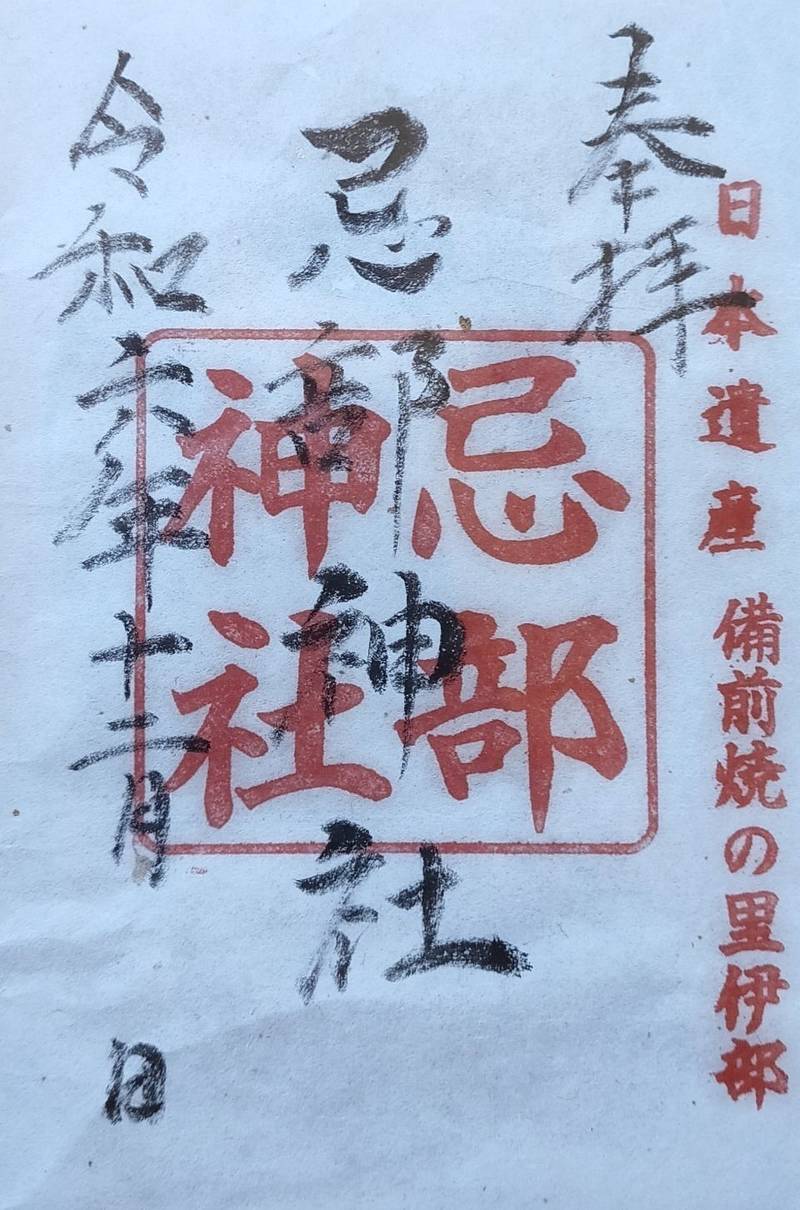 日本遺産 備前焼の里伊部
奉拝
忌部神社
忌部
神社
令和六年十二月 日